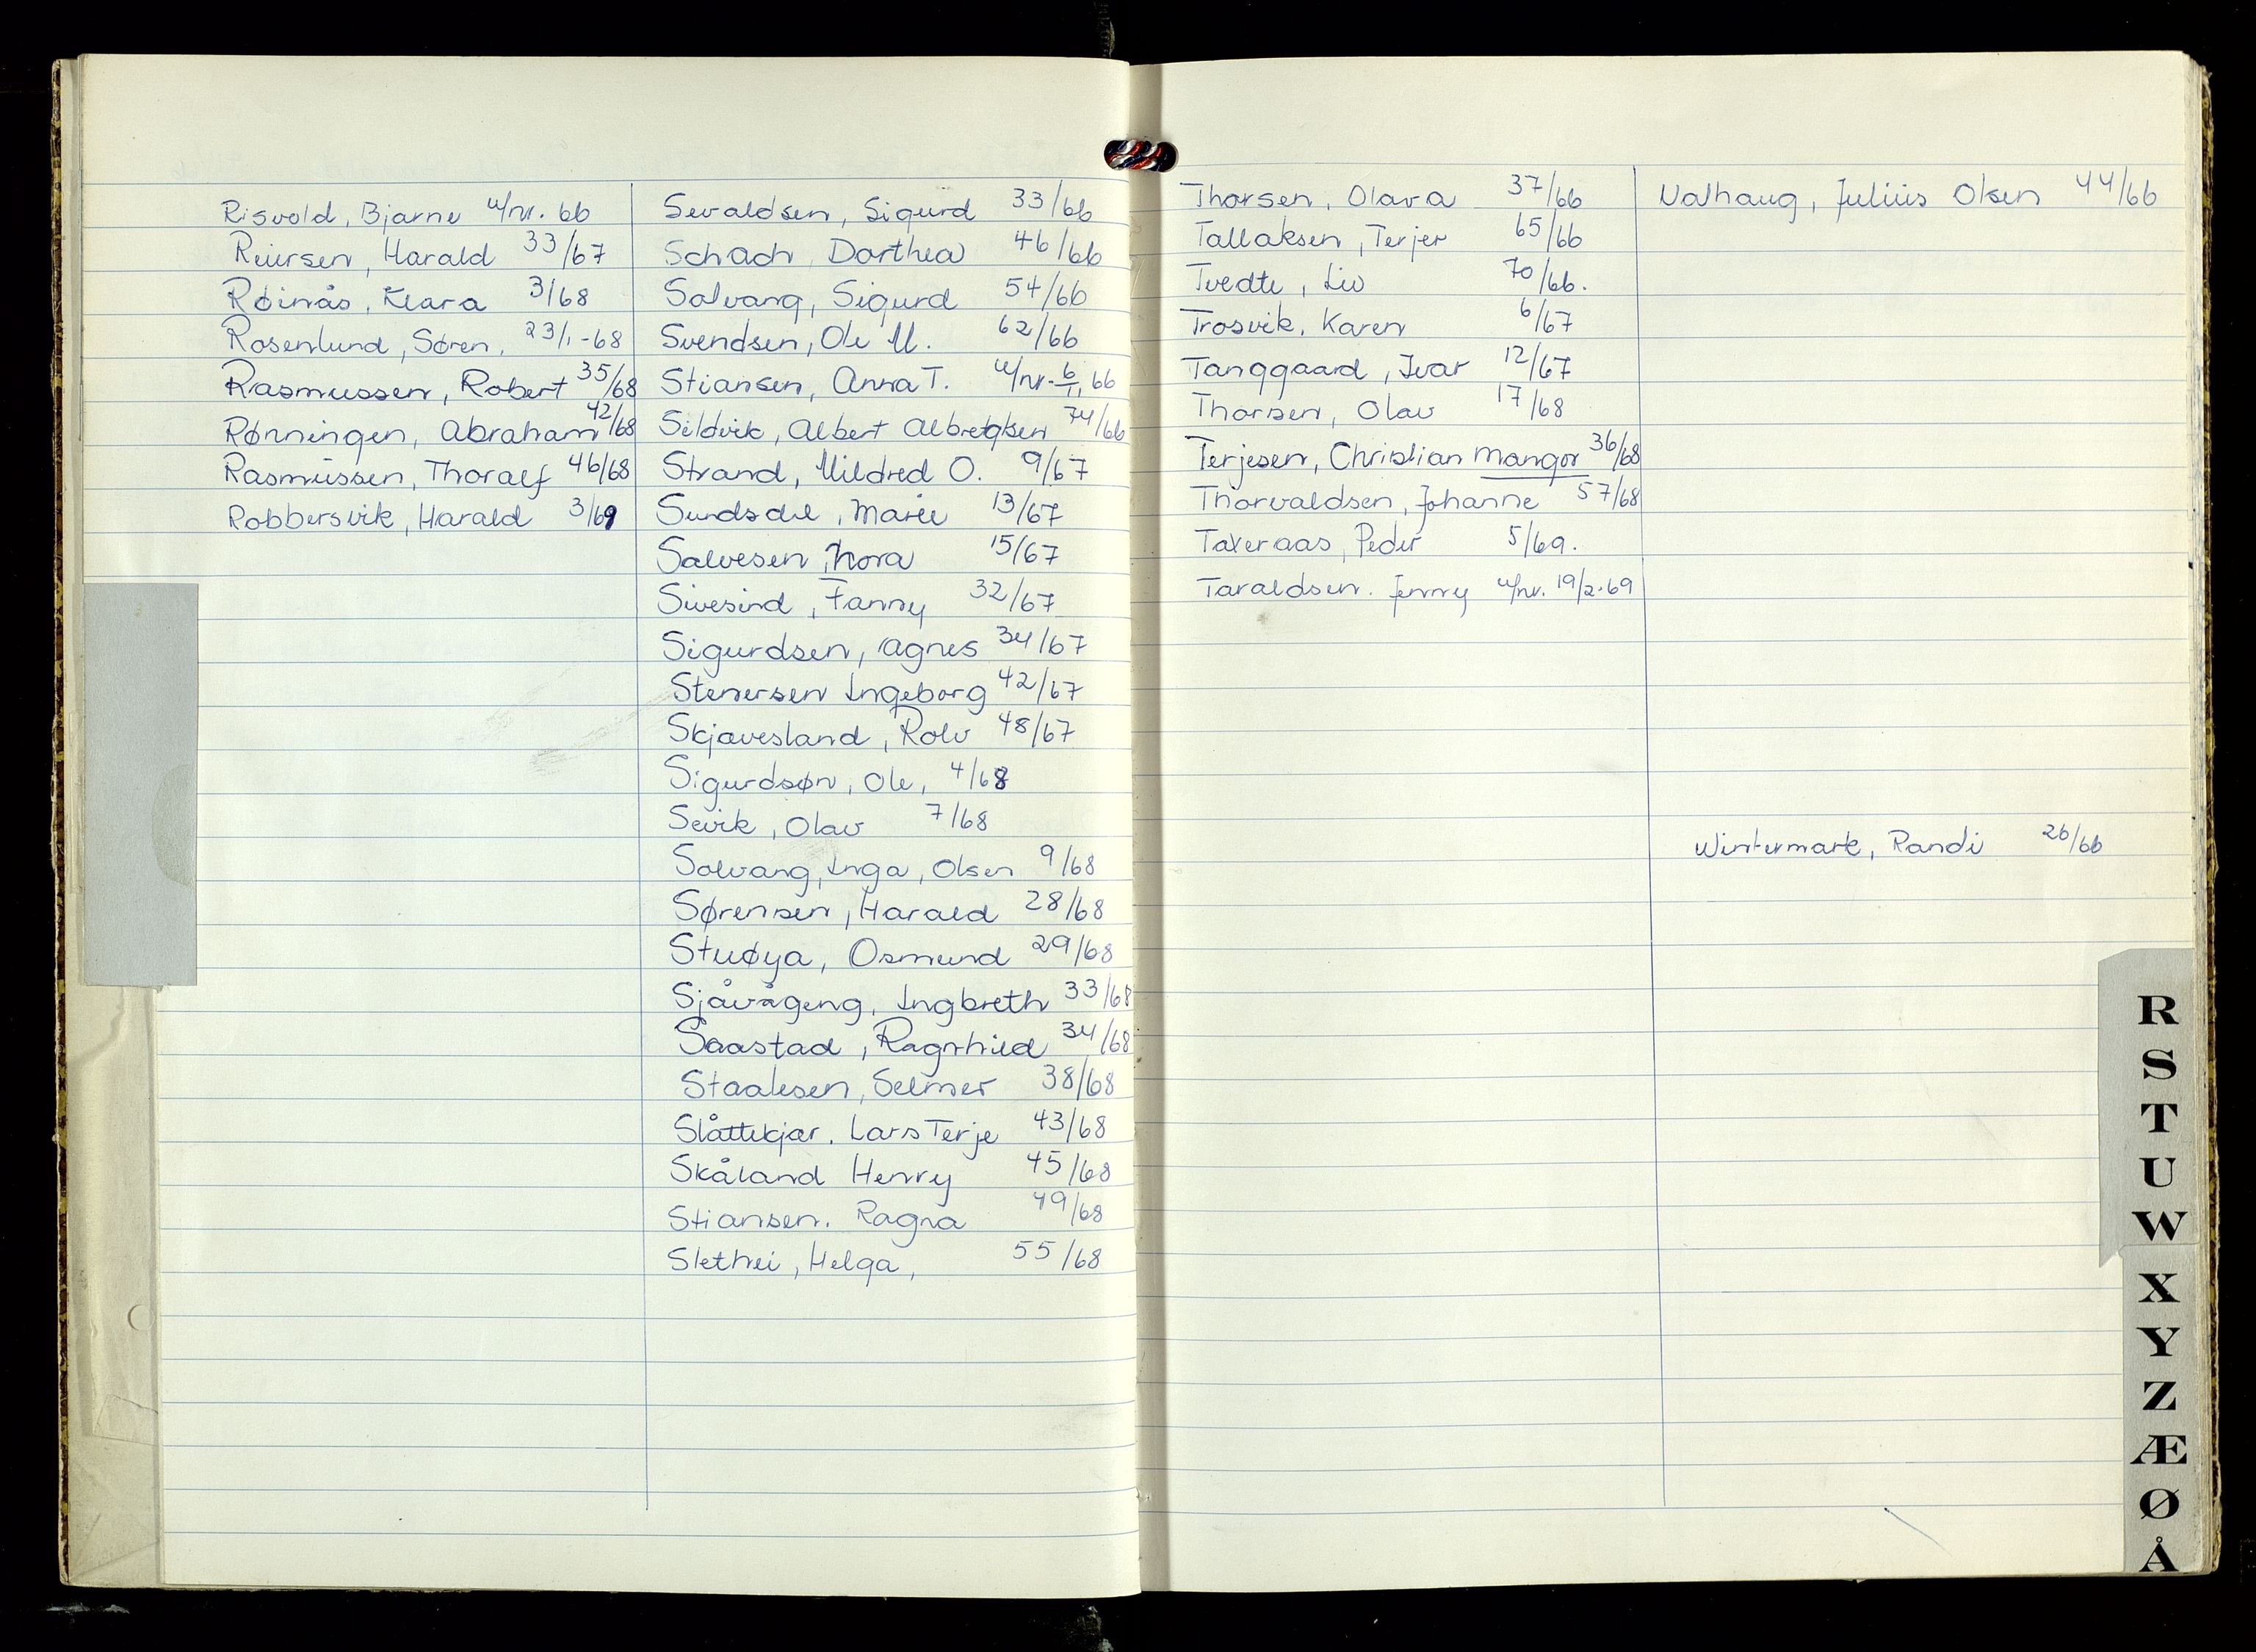 Risvold, Bjarne u/nr. 66
Reiersen, Harald 33/67
Røinås, Klara 3/68
Rosenlund, Søren, 23/1-68
Rasmussen, Robert 35/68
Rønningen, Abraham 42/68
Rasmussen, Thoralf 46/68
Robbersvik, Harald 3/69
Sevaldsen, Sigurd 33/66
Schach, Dorthea 46/66
Solvang, Sigurd 54/66
Svendsen, Ole M. 62/66
Stiansen, Anna T. u/nr. 6/11 66
Sildvik, Albert Albregtsen 74/66
Strand, Mildred O. 9/67
Sundsdal, Marie 13/67
Salvesen, Nora 15/67
Sivesind, Fanny 32/67
Sigurdsen, Agnes 34/67
Stenersen Ingeborg 42/67
Skjævesland, Rolv 48/67
Sigurdsøn, Ole, 4/68
Sevik, Olav 7/68
Solvang, Inga, Olsen 9/68
Sørensen, Harald 28/68
Stuøya, Osmund 29/68
Sjåvågeng, Ingbreth 33/68
Saastad, Ragnhild 34/68
Staalesen, Selmer 38/68
Slåttekjær. Lars Terje 43/68
Skåland Henry 45/68
Stiansen. Ragna 49/68
Slethei, Helga, 55/68
Thorsen, Olava 37/66
Tallaksen, Terjer 65/66
Tvedte, Liv 70/66.
Trosvik, Karen 6/67
Tanggaard, Ivar 12/67
Thorsen, Olav 17/68
Terjesen, Christian Mangor 36/68
Thorvaldsen, Johanne 57/68
Taxeraas, Peder 5/69.
Taraldsen. Jenny u/nr. 19/2-69
Valhaug, Julius Olsen 44/66
Wintermark, Randi 26/66
R
S
T
U
W
X
Y
Z
Æ
Ø
Å